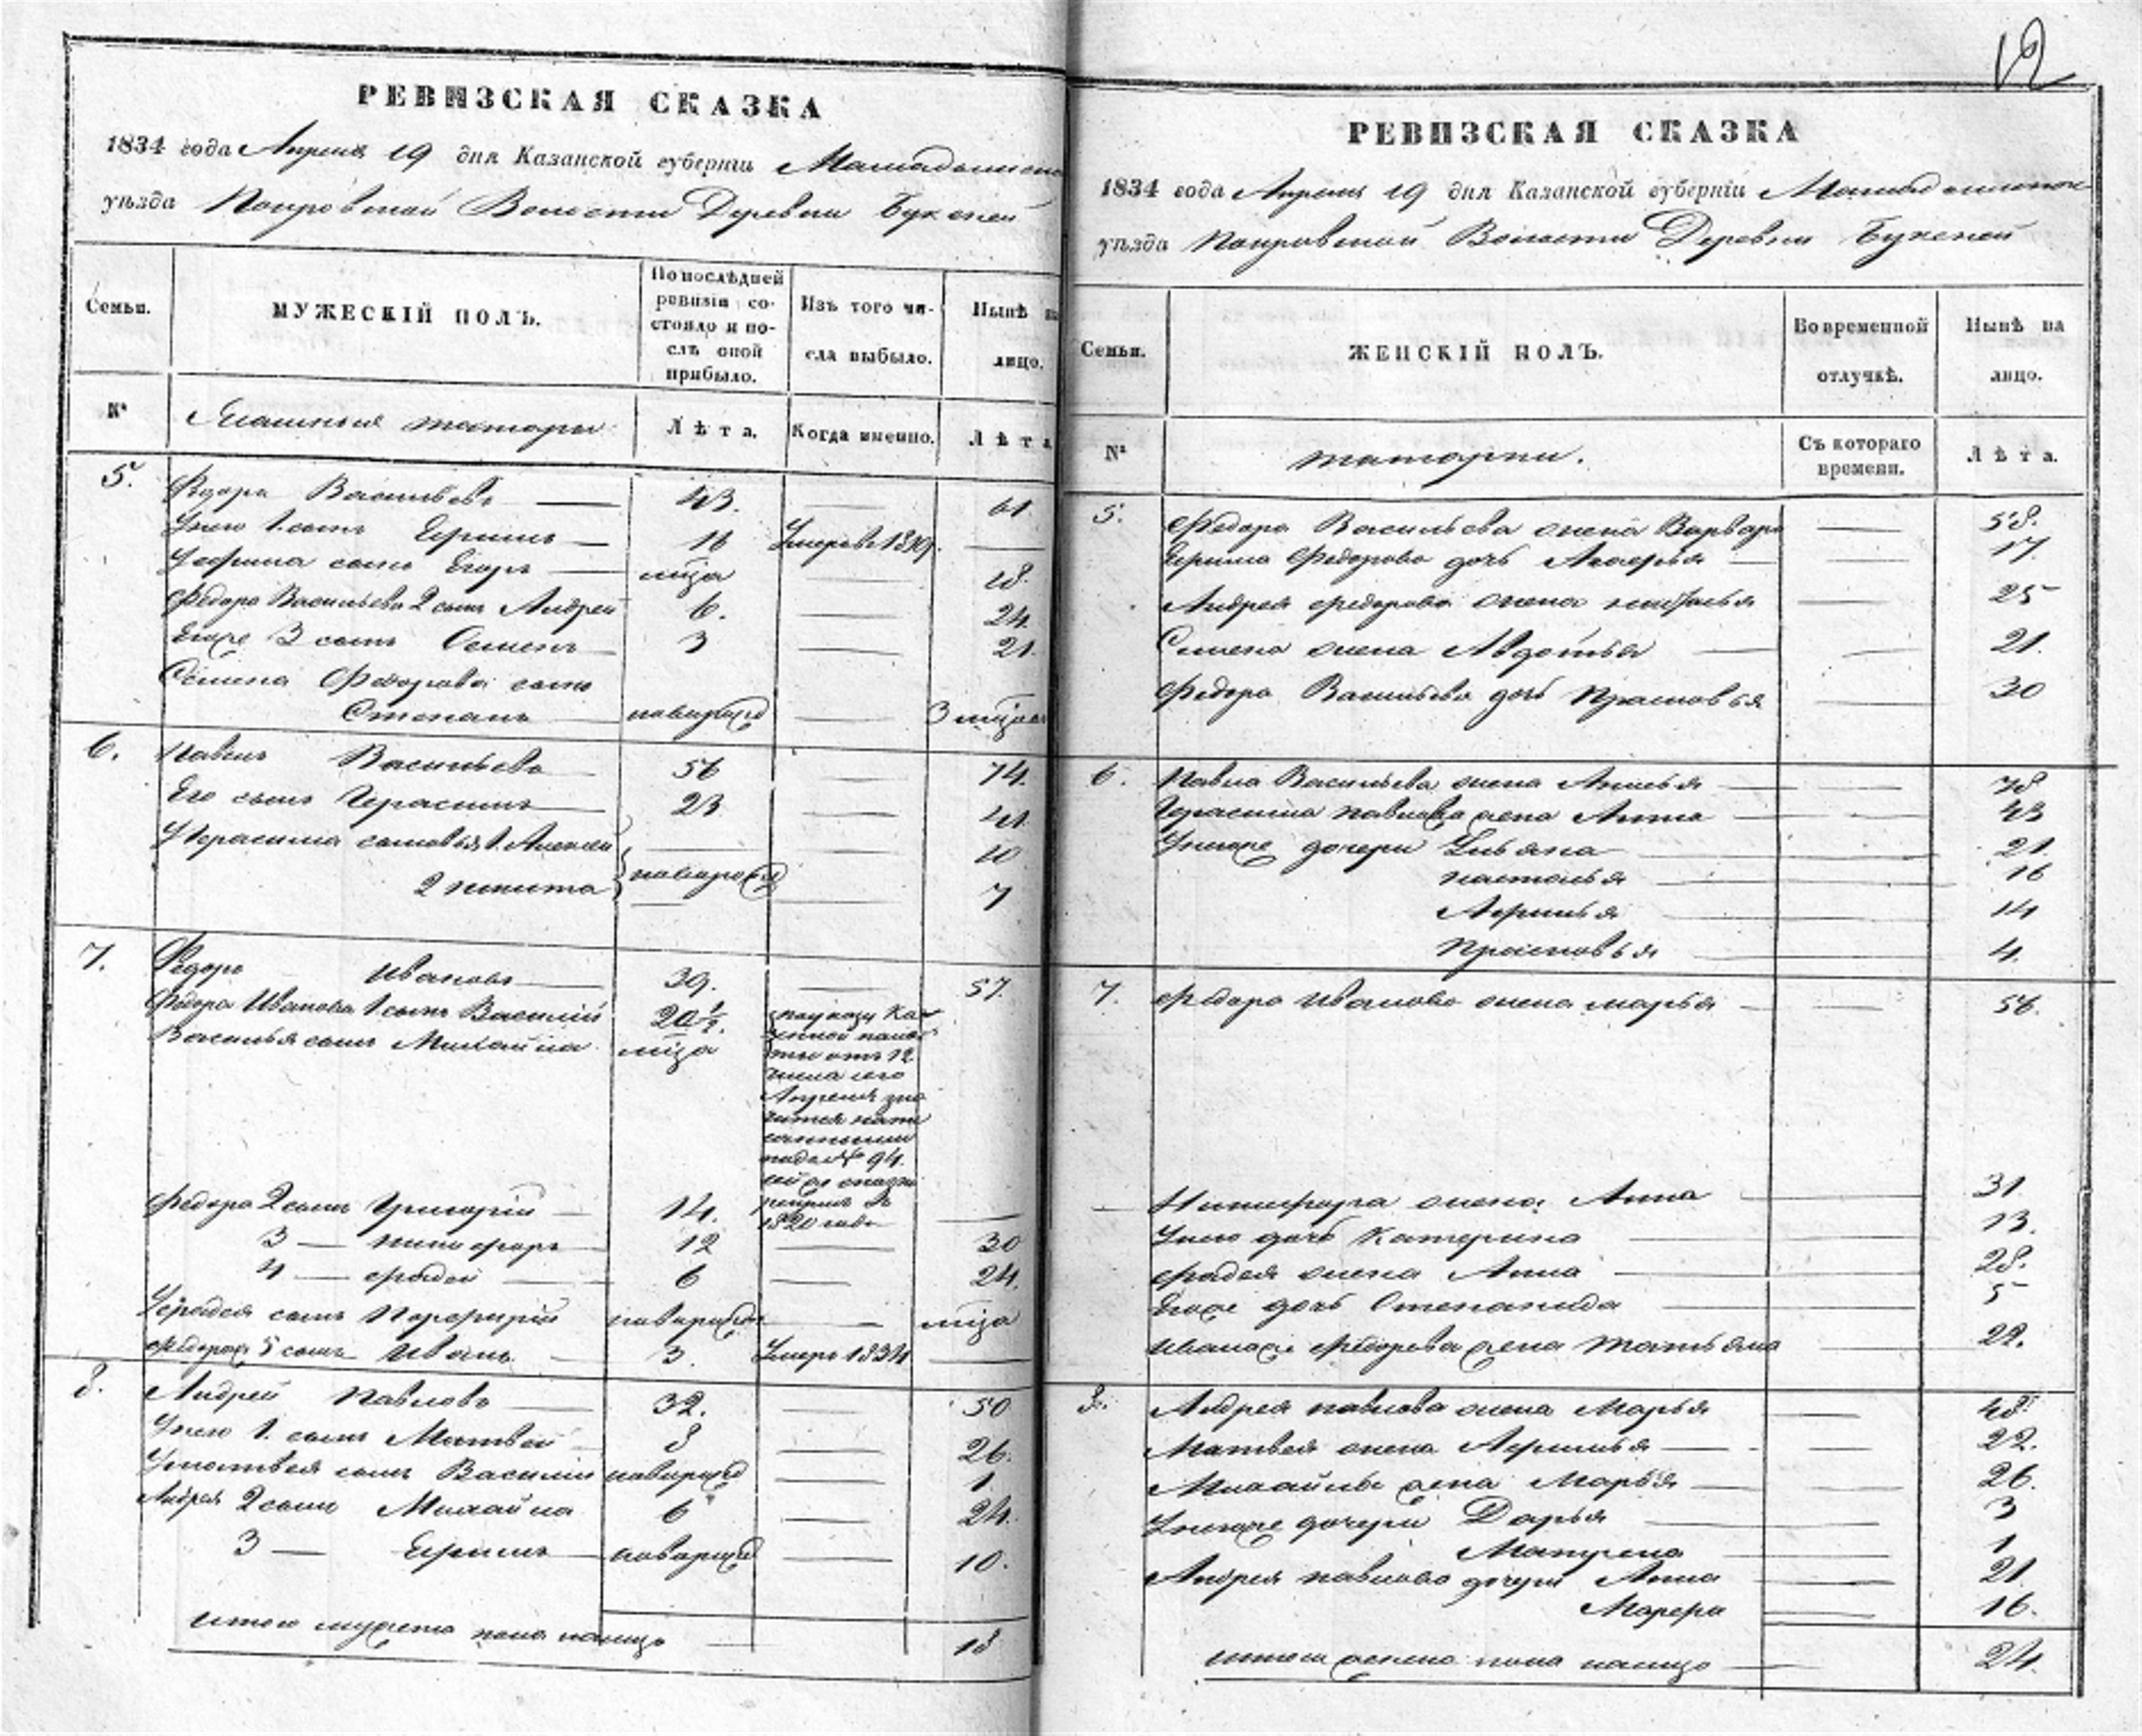 12
РЕВИЗСКАЯ СКАЗКА
1834 года Апреля 19 дня Казанской губерніи Мамадышскаго
уѣзда Покровской Волости Деревни Буксней
Семьи.
МУЖЕСКІЙ ПОЛЪ.
По послѣдней ревизіи состояло и послѣ оной прибыло.
Изъ того числа выбыло.
Нынѣ на лицо.
№
татары
Лѣта.
Когда именно.
Лѣта
5. Федоръ Васильевъ 43. 61
У него 1. сынъ Ефимъ 16 Умеръ въ 1819.
У Ефима сынъ Егоръ м҃ца 18.
Федора Васильева 2 сынъ Андрей 6. 24.
Егоже 3 сынъ Семенъ 3 21.
Семена Федорова сынъ
Степанъ новорожд 3 м҃цов
6. Павелъ Васильевъ 56 74.
Его сынъ Герасимъ 23 41.
У Герасима сыновья 1. Алексей 10
2 никита новорожд 7
7. Федоръ Ивановъ 39. 57.
Федора Иванова 1. сынъ Василий 20½
Василья сынъ Михайла м҃ца
по указу Ка
зенной пала
ты отъ 12
числа сего
Апреля зна
чится напи
санными
подъ № 94.
1820 года
Федора 2 сынъ Григорий 14.
3 — никифоръ 12 30
4 — фадей 6 24.
У фадея сынъ Порфирий новорожд м҃ца
Федора 5 сынъ Иванъ 3. Умеръ 1834
8. Андрей Павловъ 32. 50
У него 1. сынъ Матвей 8 26.
У матвея сынъ Василий новорожд 1.
Андрея 2 сынъ Михайла 6 24.
3 — Ефимъ новорожд 10.
Итого мужеска пола налицо 18
РЕВИЗСКАЯ СКАЗКА
1834 года Апреля 19 дня Казанской губерніи Мамадышскаго
уѣзда Покровской Волости Деревни Буксней
Семьи.
ЖЕНСКІЙ ПОЛЪ.
Во временной отлучкѣ.
Нынѣ на лицо.
№
татарки.
Съ котораго времени.
Лѣта.
5. Федора Васильева жена Варвара 58.
Ефима Федорова дочь 17.
Андрея федорова жена наталья 25
Семена жена Авдотья 21.
Федора Васильева дочь Прасковья 30
6. Павла Васильева жена Анисья 78
Герасима павлова жена Анна 43
У них же дочери Ульяна 21.
настасья 16
Афимья 14
Прасковья 4.
7. Федора Иванова жена марья 56.
Никифора жена Анна 31.
У него дочь Катерина 13.
фадея жена Анна 28.
Егоже дочь Степанида 5
Ивана же Федорова жена татьяна 22.
8. Андрея павлова жена Марья 48
Матвея жена Афимья 22.
Михайлы жена Марья 26.
У них же дочери Дарья 3
Матрена 1
Андрея павлова дочери Анна 21.
Марфа 16.
Итого женска пола налицо 24.